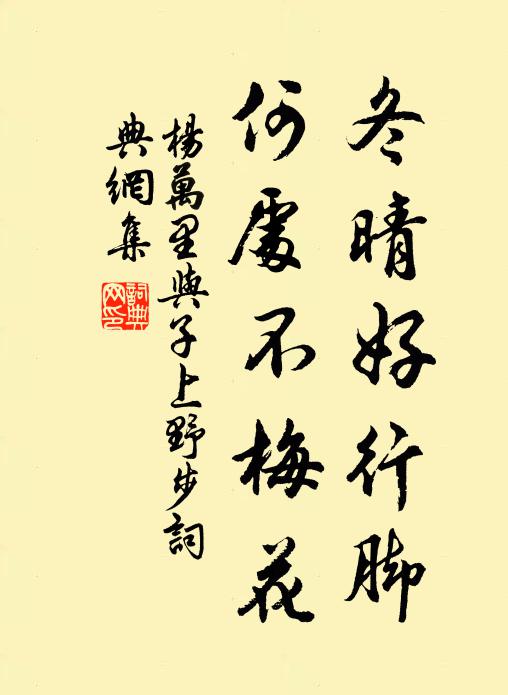 冬晴好行脚
何處不梅花
楊萬里與子上野步詞
典網集
詞典
网印